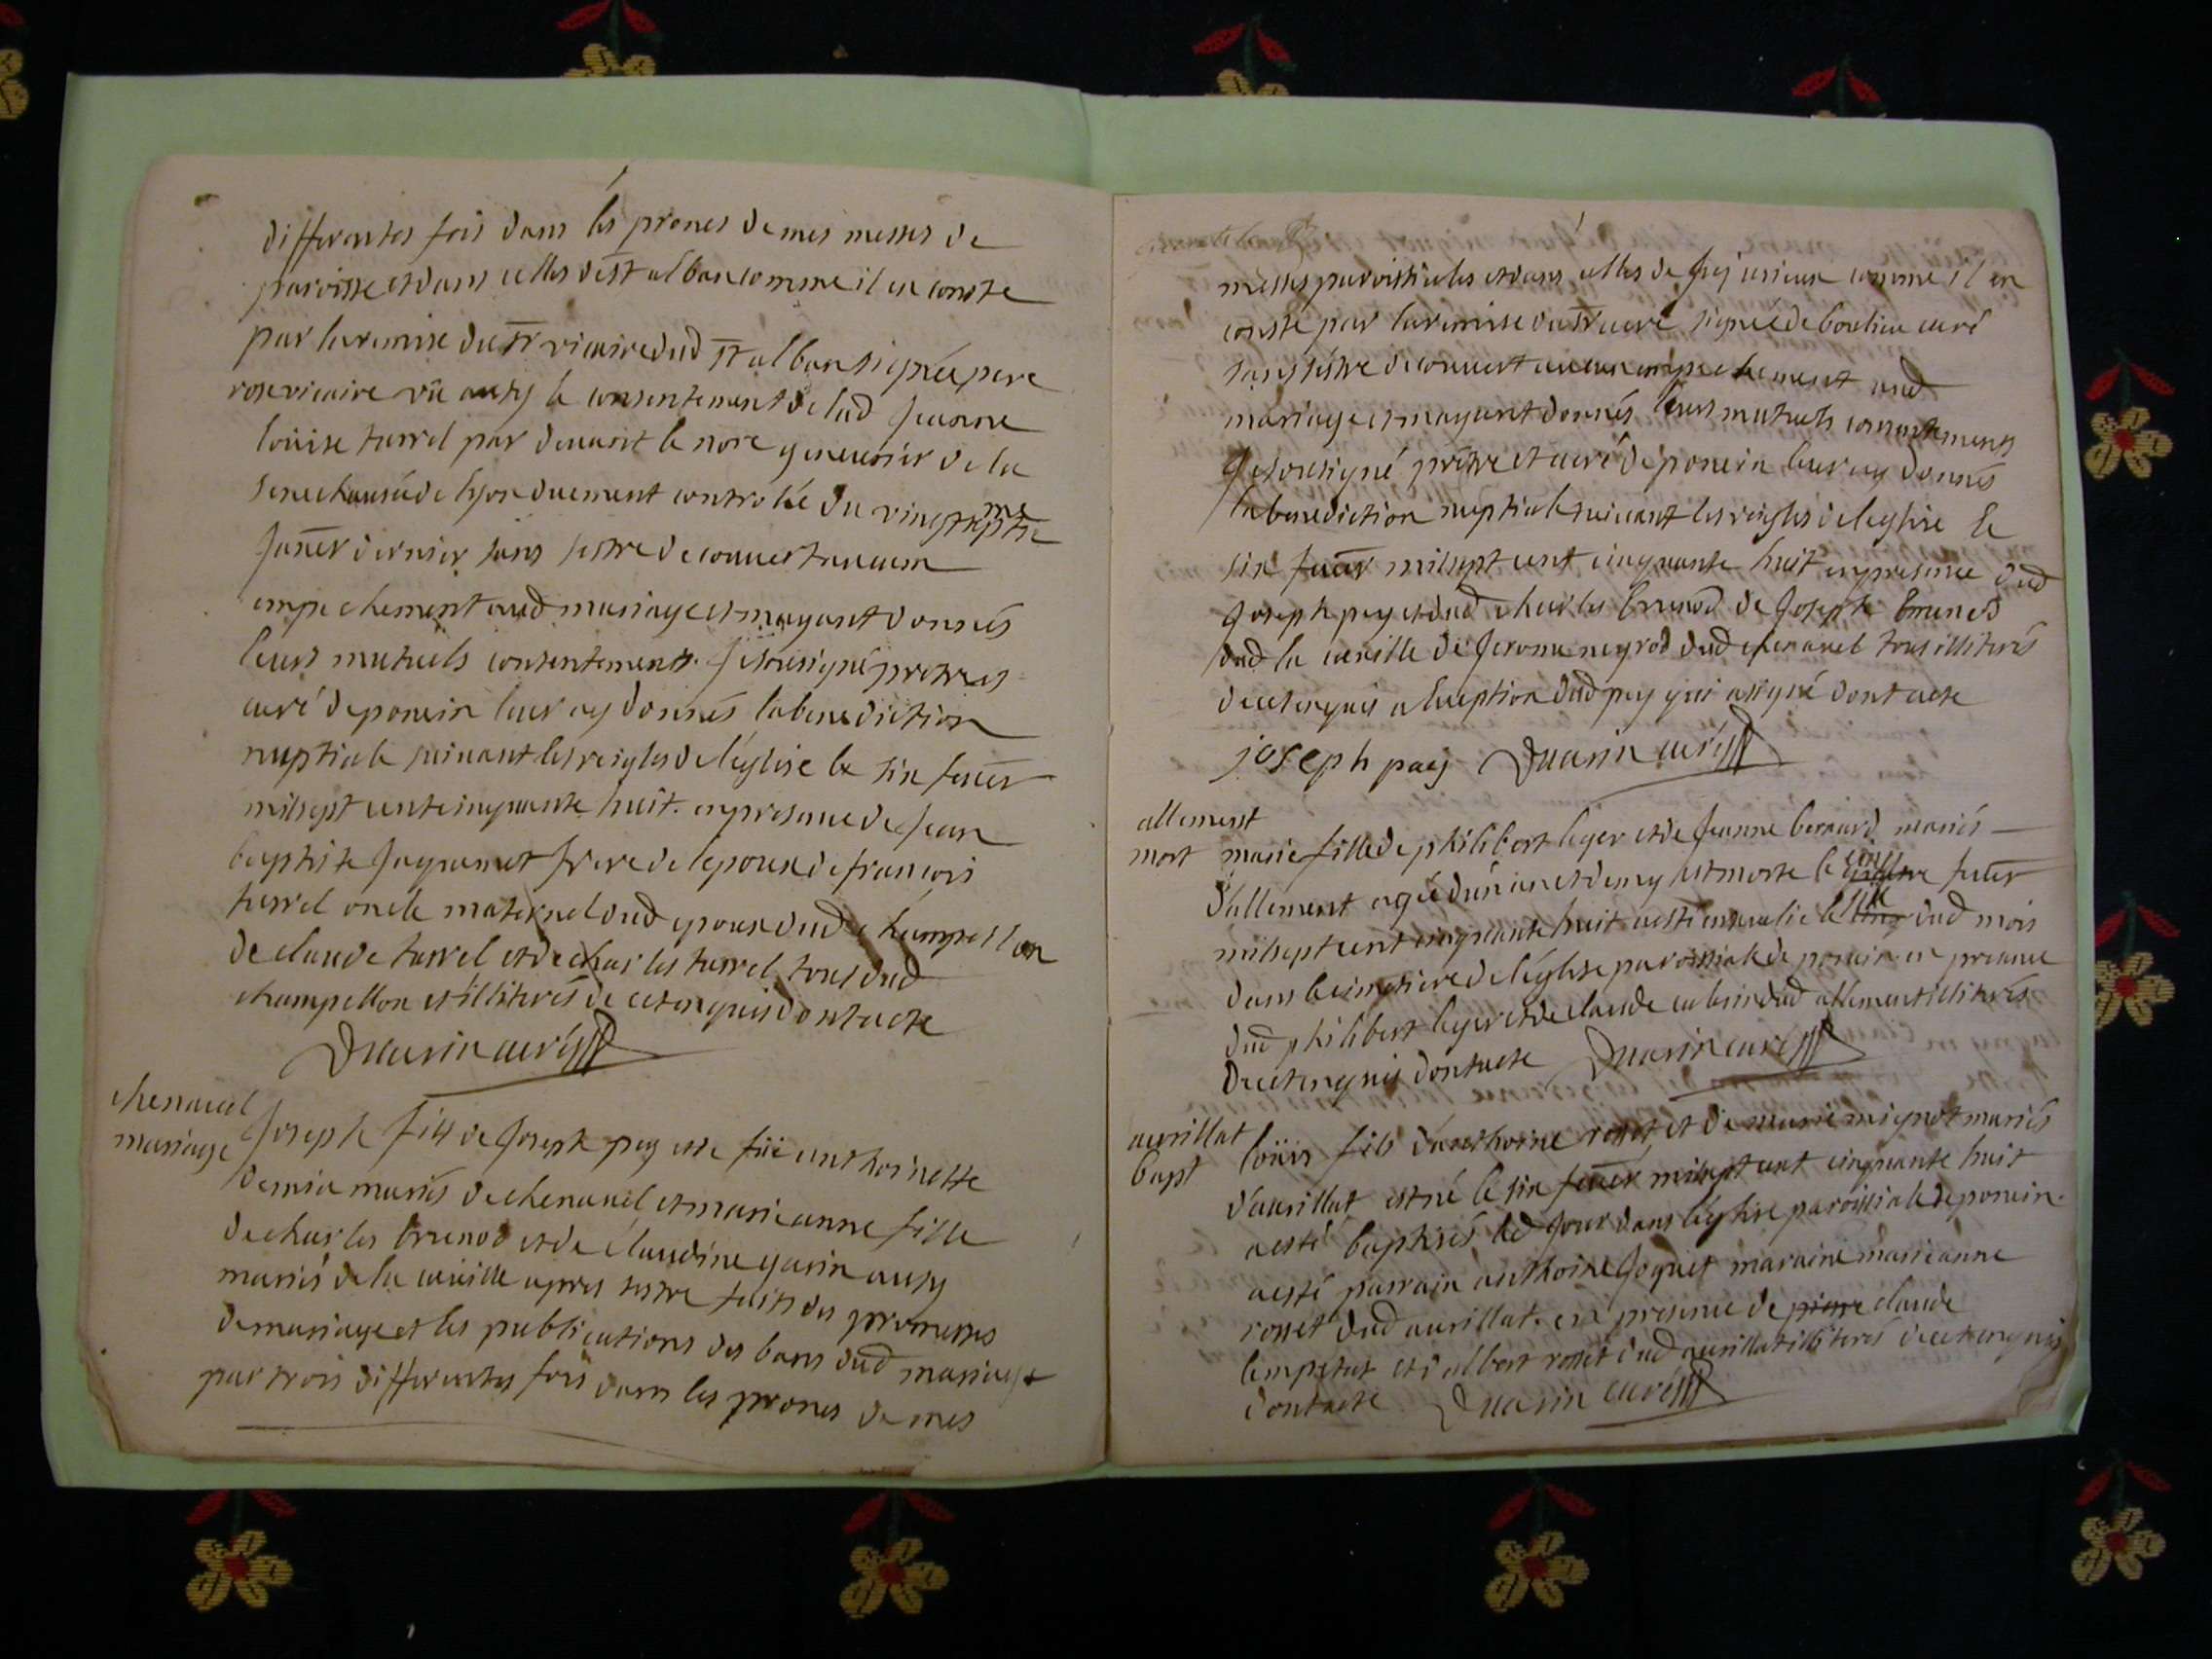 differentes fois dans les prones de mes messes de
paroisse et dans celles de st alban comme il en conste
par la remise du sr vicaire dud st alban signée pere
rose vicaire vû aussy le consentement de lad jeanne
loüise turrel par devant le nore de la
senechaussée de lyon duement controlée du vingt septie me
janer dernier sans s'estre decouvert aucun
empechement aud mariage et m'ayant donnés
leurs mutuels consentements je sousigné pretre et
curé de poncin leur ay donnés la benediction
nuptiale suivant les reigles de l'église le six fever
mil sept cent cinquante huit en presence de jean
baptiste frere de lepoux de françois
turrel oncle maternel dud epoux dud champellon
de claude turrel et de charles turrel tous dud
champellon et illiterés de ce enquis dont acte
Duarin curé
chenavel
mariage
Joseph fils de joseph pey et de füe anthoinette
demia mariés de chenavel et marie anne fille
de charles brunod et de claudine garin aussy
mariés de la cueille apres s'estre faits des promesses
de mariage et les publications des bans dud mariage
par trois differentes fois dans les prones de mes
messes paroissiales et dans celles de jujurieux comme il en
conste par la remise du sr curé signée de boulieu curé
sans s'estre decouvert aucun empechement aud
mariage et m'ayant donnés leurs mutuels consentements
je sousigné prêtre et curé de poncin leur ay donnés
la benediction nuptiale suivant les reigles de leglise le
six fever mil sept cent cinquante huit en presence dud
joseph pey et dud charles brunod de joseph brunod
dud la cueille de jerome negrod dud chenavel tous illiterés
de ce enquis a l'exception dud pey qui a signé dont acte
joseph paej Duarin curé
allement
mort
marie fille de philibert leger et de jeanne bernard mariés
d'allement agée d'un an et demy est morte le cinq fever
mil sept cent cinquante huit a esté ensevelie le six dud mois
dans le cimetiere de léglise paroissiale de poncin en presence
dud philibert leger et de claude cabuin dud allement illiterés
de ce enquis dont acte Duarin curé
aurillat
bapt
loüis fils d'anthoine rosset et de marie mignot mariés
d'aurillat est né le six fever mil sept cent cinquante huit
a esté baptisés led jour dans léglise paroissiale de poncin
a esté parrain anthoine joquet maraine marie anne
rosset dud aurillat en presence de pierre claude
lempetut et d'albert rosset dud aurillat illiterés de ce enquis
dont acte Duarin curé